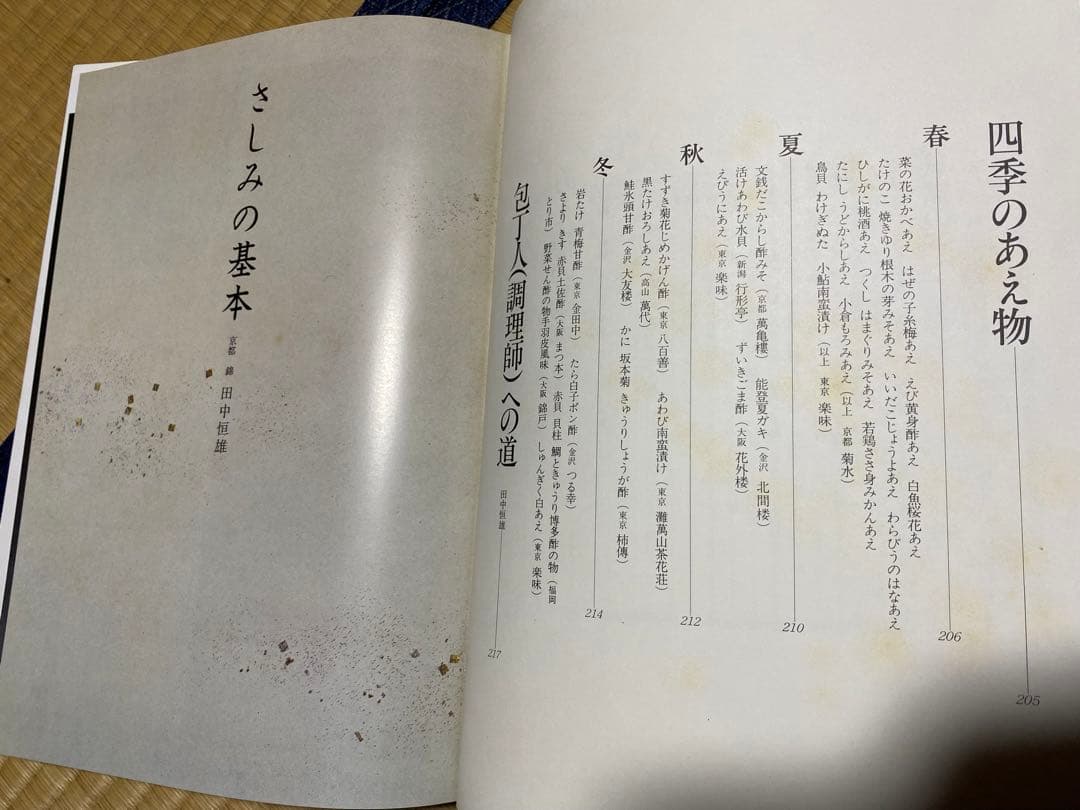 四季のあえ物
205
春
206
菜の花おかべあえ　はぜの子糸梅あえ　えび黄身酢あえ　白魚桜花あえ
たけのこ　焼きゆり根木の芽みそあえ　いいだこじょうよあえ　わらびうのはなあえ
ひしがに桃酒あえ　つくし　はまぐりみそあえ　若鶏ささ身みかんあえ
たにし　うどからしあえ　小倉もろみあえ（以上　京都　菊水）
鳥貝　わけぎぬた　小鮎南蛮漬け（以上　東京　楽味）
夏
210
文銭だこからし酢みそ（京都　萬亀樓）　能登夏ガキ（金沢　北間楼）
活けあわび水貝（新潟　行形亭）　ずいきごま酢（大阪　花外楼）
えびうにあえ（東京　楽味）
秋
212
すずき菊花じめかげん酢（東京　八百善）　あわび南蛮漬け（東京　灘萬山茶花荘）
黒たけおろしあえ（高山　萬代）
鮭氷頭甘酢（金沢　大友楼）　かに　坂本菊　きゅうりしょうが酢（東京　柿傳）
冬
214
岩たけ　青梅甘酢（東京　金田中）　たら白子ポン酢（金沢　つる幸）
さより　きす　赤貝土佐酢（大阪　まつ本）　赤貝　貝柱　鯛ときゅうり博多酢の物（福岡
とり市）　野菜せん酢の物手羽皮風味（大阪　錦戸）　しゅんぎく白あえ（東京　楽味）
包丁人（調理師）への道
田中恒雄
217
さしみの基本
京都　錦　田中恒雄